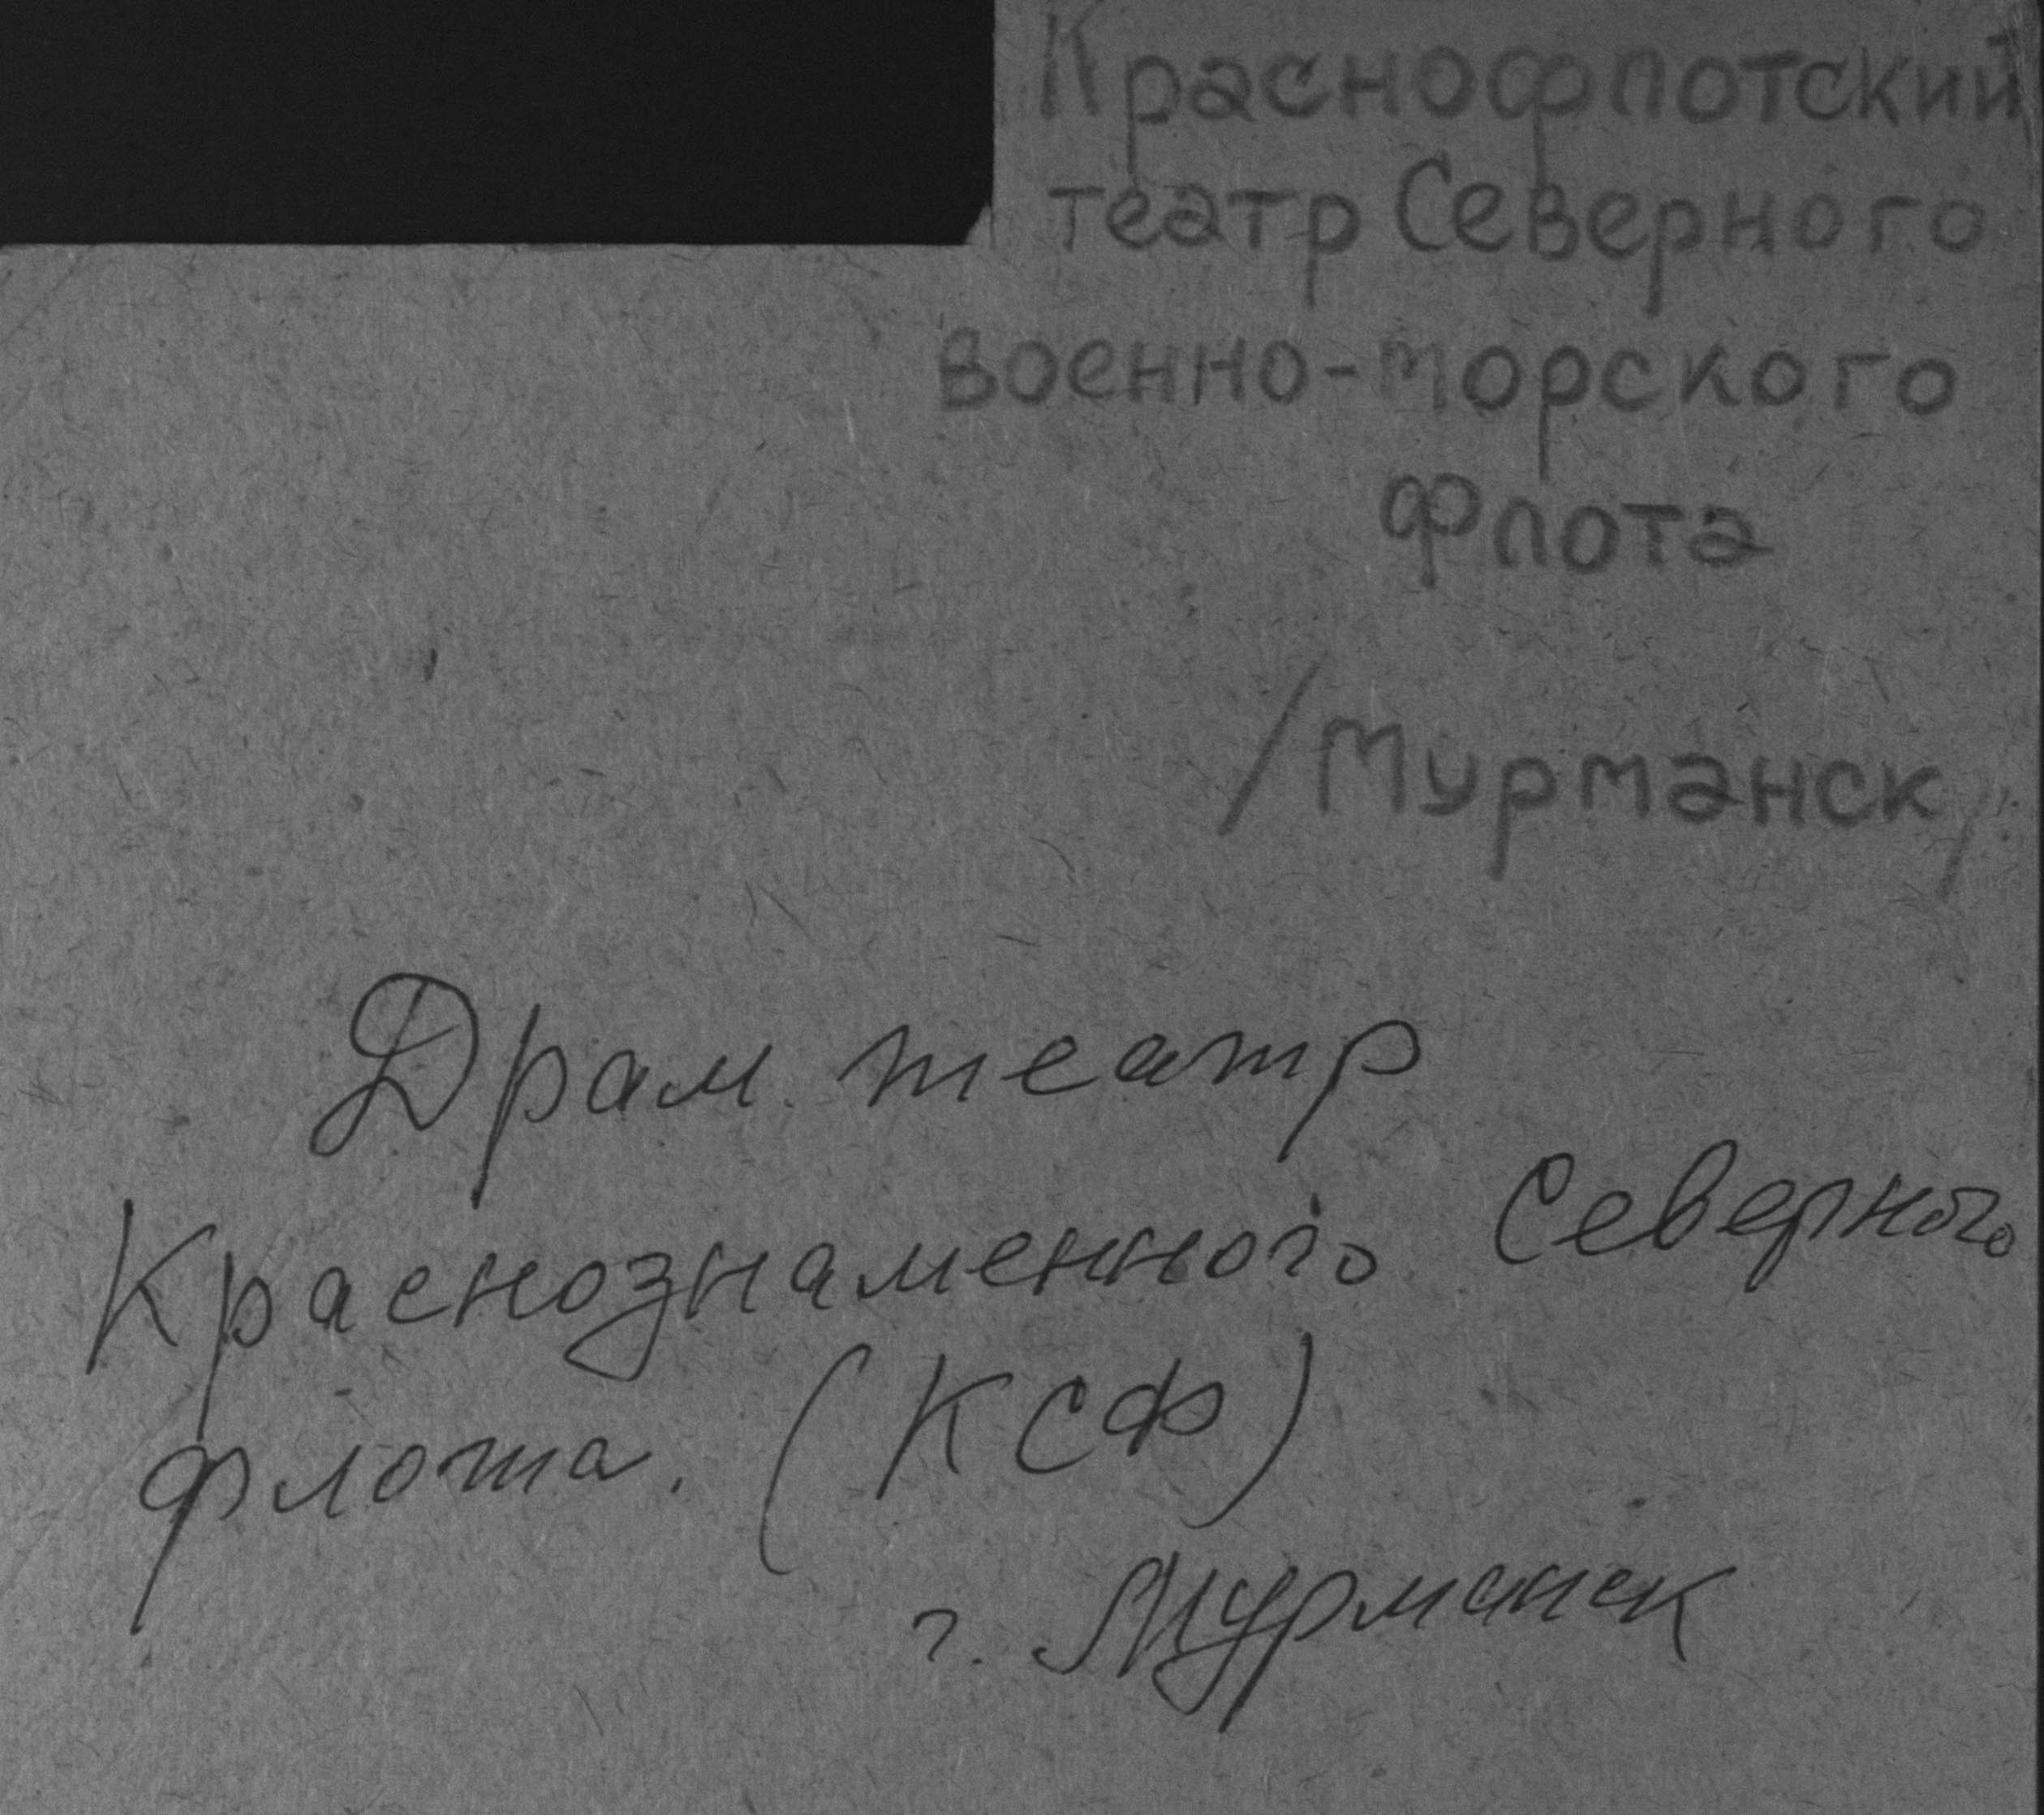 Краснофлотский
театр Северного
военно-морского
флота
/Мурманск/
Драм. театр
Краснознаменного Северного
флота. (КСФ)
г. Мурманск